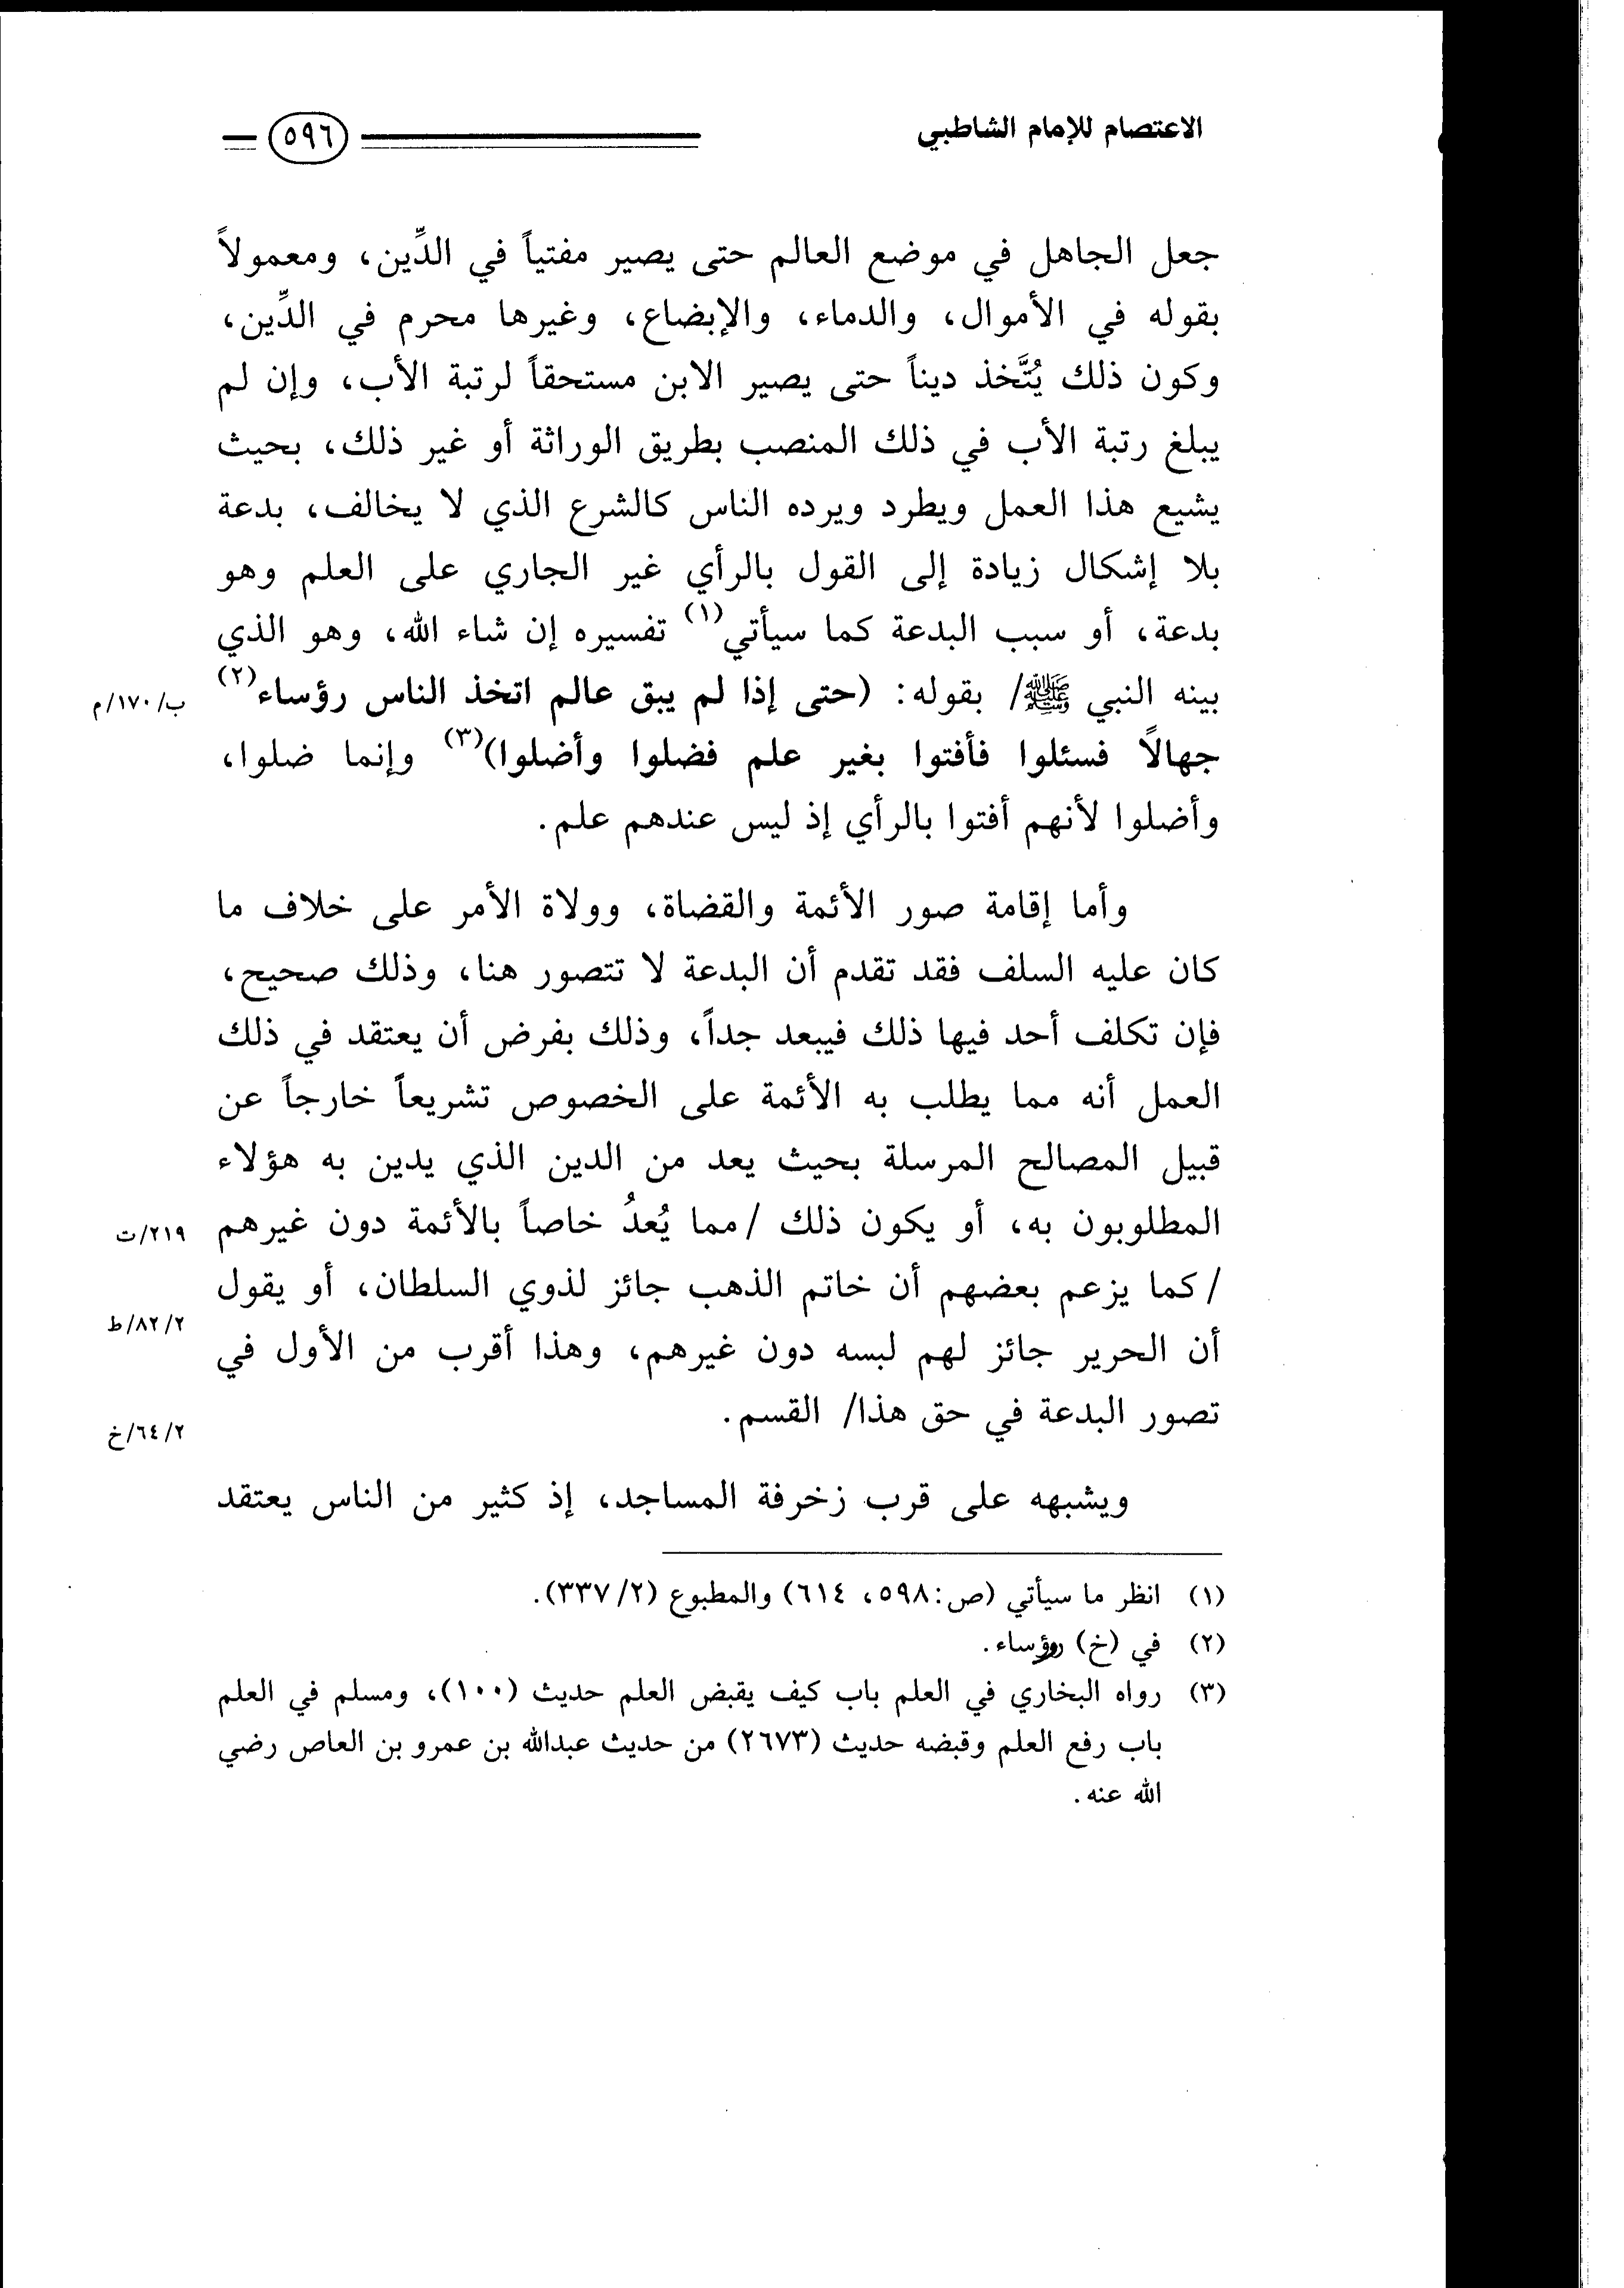 الاعتصام للإمام الشاطبي
٥٩٦
جعل الجاهل في موضع العالم حتى يصير مفتياً في الدِّين، ومعمولاً
بقوله في الأموال، والدماء، والإبضاع، وغيرها محرم في الدِّين،
وكون ذلك يُتَّخذ ديناً حتى يصير الابن مستحقاً لرتبة الأب، وإن لم
يبلغ رتبة الأب في ذلك المنصب بطريق الوراثة أو غير ذلك، بحيث
يشيع هذا العمل ويطرد ويرده الناس كالشرع الذي لا يخالف، بدعة
بلا إشكال زيادة إلى القول بالرأي غير الجاري على العلم وهو
بدعة، أو سبب البدعة كما سيأتي(١) تفسيره إن شاء الله، وهو الذي
بينه النبي ﷺ/ بقوله: (حتى إذا لم يبق عالم اتخذ الناس رؤساء(٢)
ب/١٧٠/م
جهالًا فسئلوا فأفتوا بغير علم فضلوا وأضلوا)(٣) وإنما ضلوا،
وأضلوا لأنهم أفتوا بالرأي إذ ليس عندهم علم.
وأما إقامة صور الأئمة والقضاة، وولاة الأمر على خلاف ما
كان عليه السلف فقد تقدم أن البدعة لا تتصور هنا، وذلك صحيح،
فإن تكلف أحد فيها ذلك فيبعد جداً، وذلك بفرض أن يعتقد في ذلك
العمل أنه مما يطلب به الأئمة على الخصوص تشريعاً خارجاً عن
قبيل المصالح المرسلة بحيث يعد من الدين الذي يدين به هؤلاء
المطلوبون به، أو يكون ذلك /مما يُعدُ خاصاً بالأئمة دون غيرهم
٢١٩/ت
/كما يزعم بعضهم أن خاتم الذهب جائز لذوي السلطان، أو يقول
٨٢/٢/ط
أن الحرير جائز لهم لبسه دون غيرهم، وهذا أقرب من الأول في
تصور البدعة في حق هذا/ القسم.
٦٤/٢/خ
ويشبهه على قرب زخرفة المساجد، إذ كثير من الناس يعتقد
(١) انظر ما سيأتي (ص:٥٩٨، ٦١٤) والمطبوع (٣٣٧/٢).
(٢) في (خ) .
(٣) رواه البخاري في العلم باب كيف يقبض العلم حديث (١٠٠)، ومسلم في العلم
باب رفع العلم وقبضه حديث (٢٦٧٣) من حديث عبدالله بن عمرو بن العاص رضي
الله عنه.